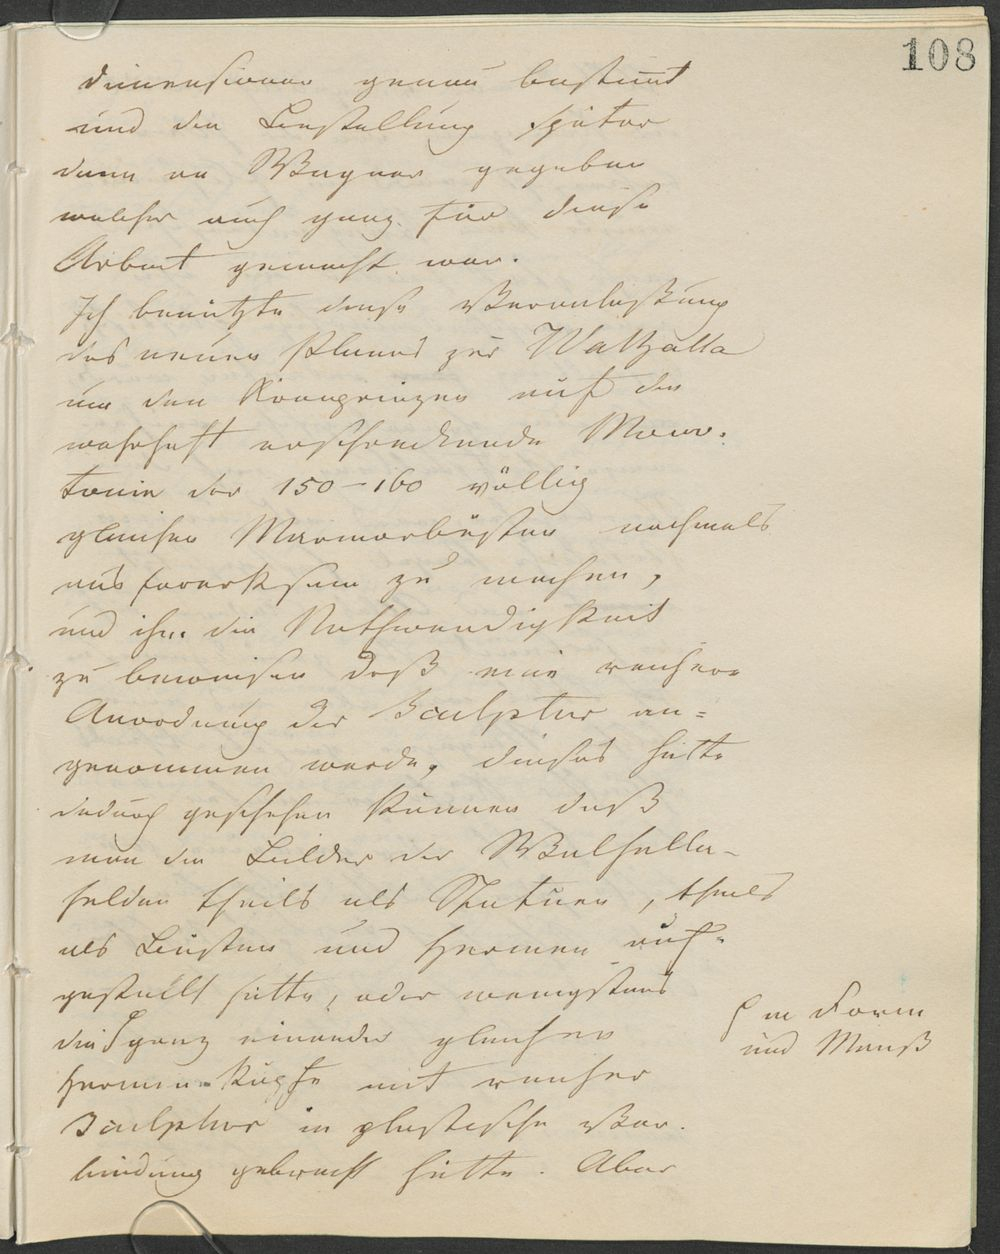 108
Dimensionen genau bestimmt
und die Bestellung später
dann an Wagner gegeben
welcher auch ganz für diese
Arbeit gemacht war.
Ich benützte diese Veranlaßung
des neuen Planes zur Walhalla
um den Kronprinzen auf die
wahrhaft erschreckende Mono-
tonie der 150–160 völlig
gleichen Marmorbüsten nochmals
aufmerksam zu machen,
und ihm die Nothwendigkeit
zu beweisen daß eine reichere
Anordnung der Sculptur an=
genommen werde, dieses hätte
dadurch geschehen können daß
man die Bilder der Walhalla-
helden theils als Statuen, theils
als Büsten und Hermen auf-
gestellt hätte, oder wenigstens
die ganz einander gleichen
in Form
und Maaß
Hermen-Köpfe mit reicher
Sculptur in plastische Ver-
bindung gebracht hätte. Aber